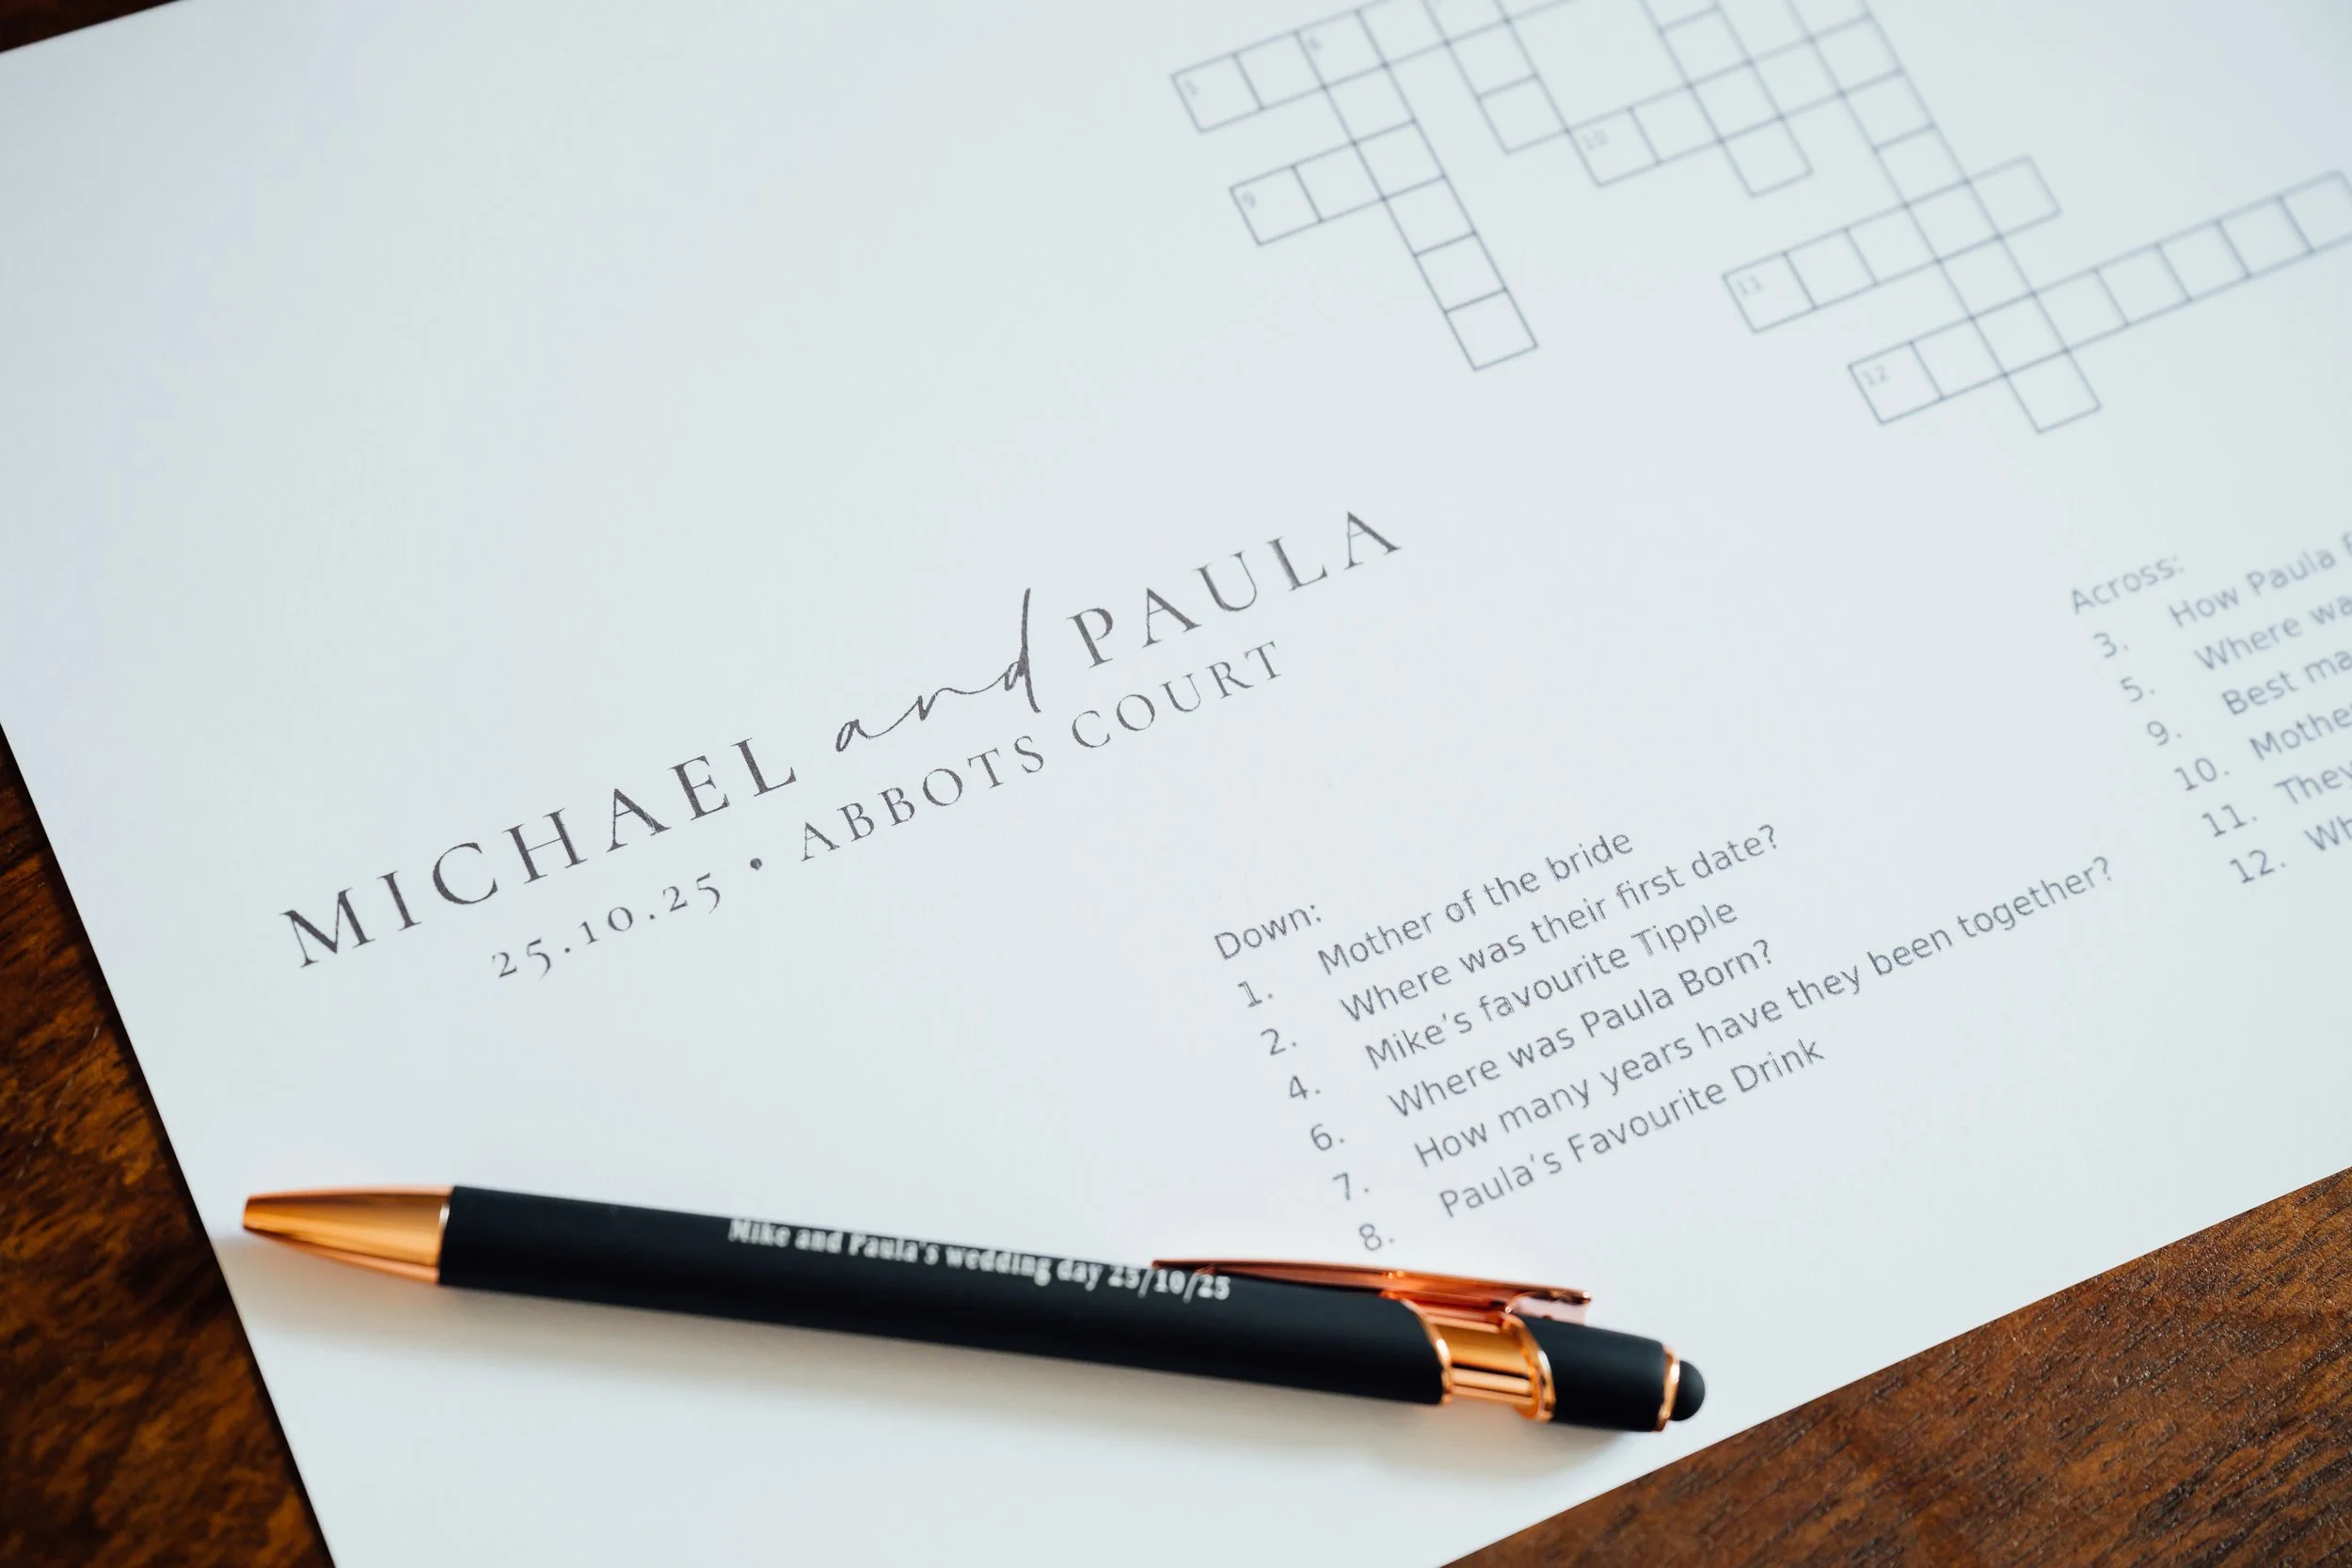 5
6
10
9
11
12
MICHAEL and PAULA
25.10.25 • ABBOTS COURT
Down:
1. Mother of the bride
2. Where was their first date?
4. Mike's favourite Tipple
6. Where was Paula Born?
7. How many years have they been together?
8. Paula's Favourite Drink
Across:
3. How Paula
5. Where
9. Best
10.
11. They
12.
Mike and Paula's wedding day 25/10/25